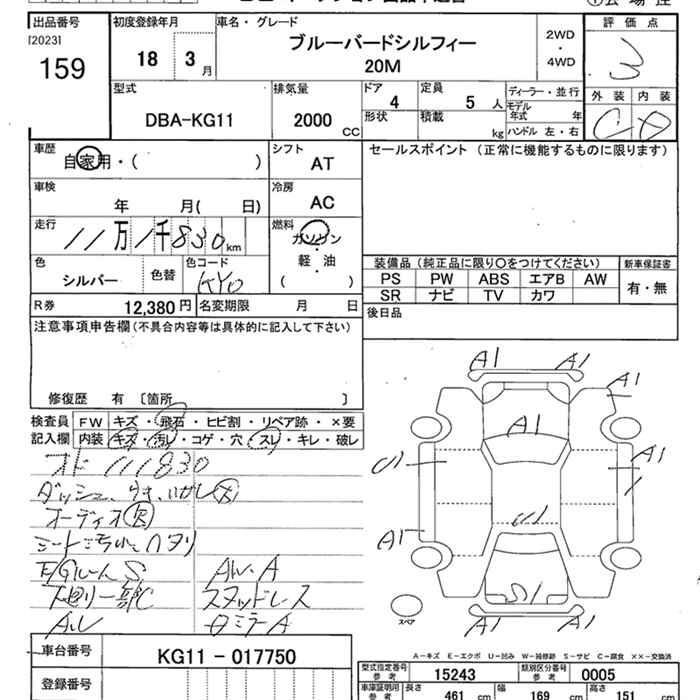 出品番号
[2023]
159
初度登録年月
18 3月
車名・グレード
ブルーバードシルフィー
20M
2WD
・
4WD
評価点
3
外装 内装
C D
型式
DBA-KG11
排気量
2000 CC
ドア
4
形状
定員
5人
積載
kg
ディーラー・並行
モデル年式 年
ハンドル 左・右
車歴
自家用・( )
シフト
AT
セールスポイント (正常に機能するものに限ります)
車検
年 月( 日)
冷房
AC
走行
11万1千830km
燃料
ガソリン
・
軽・油
( )
色
シルバー
色替
色コード
KY0
装備品 (純正品に限り○をつけてください)
PS PW ABS エアB AW
SR ナビ TV カワ
新車保証書
有・無
R券 12,380円
名変期限 月 日
後日品
注意事項申告欄(不具合内容等は具体的に記入して下さい)
修復歴 有 〔箇所 〕
検査員記入欄
FW キズ・飛石・ヒビ割・リペア跡・×要
内装 キズ・汚レ・コゲ・穴・スレ・キレ・破レ
111830
オーディオ欠
E/GルームS
AW・A
下廻り一部C
スタッドレス
A1 A1
A1
A1
A1
U1
A1
U1
S1
A1 A1
スペア
A-キズ E-エクボ U-凹み W-補修跡 S-サビ C-腐食 ××-交換済
車台番号
KG11-017750
登録番号
型式指定番号
参考
15243
類別区分番号
参考
0005
車庫証明用
参考
長さ
461 cm
幅
169 cm
高さ
151 cm